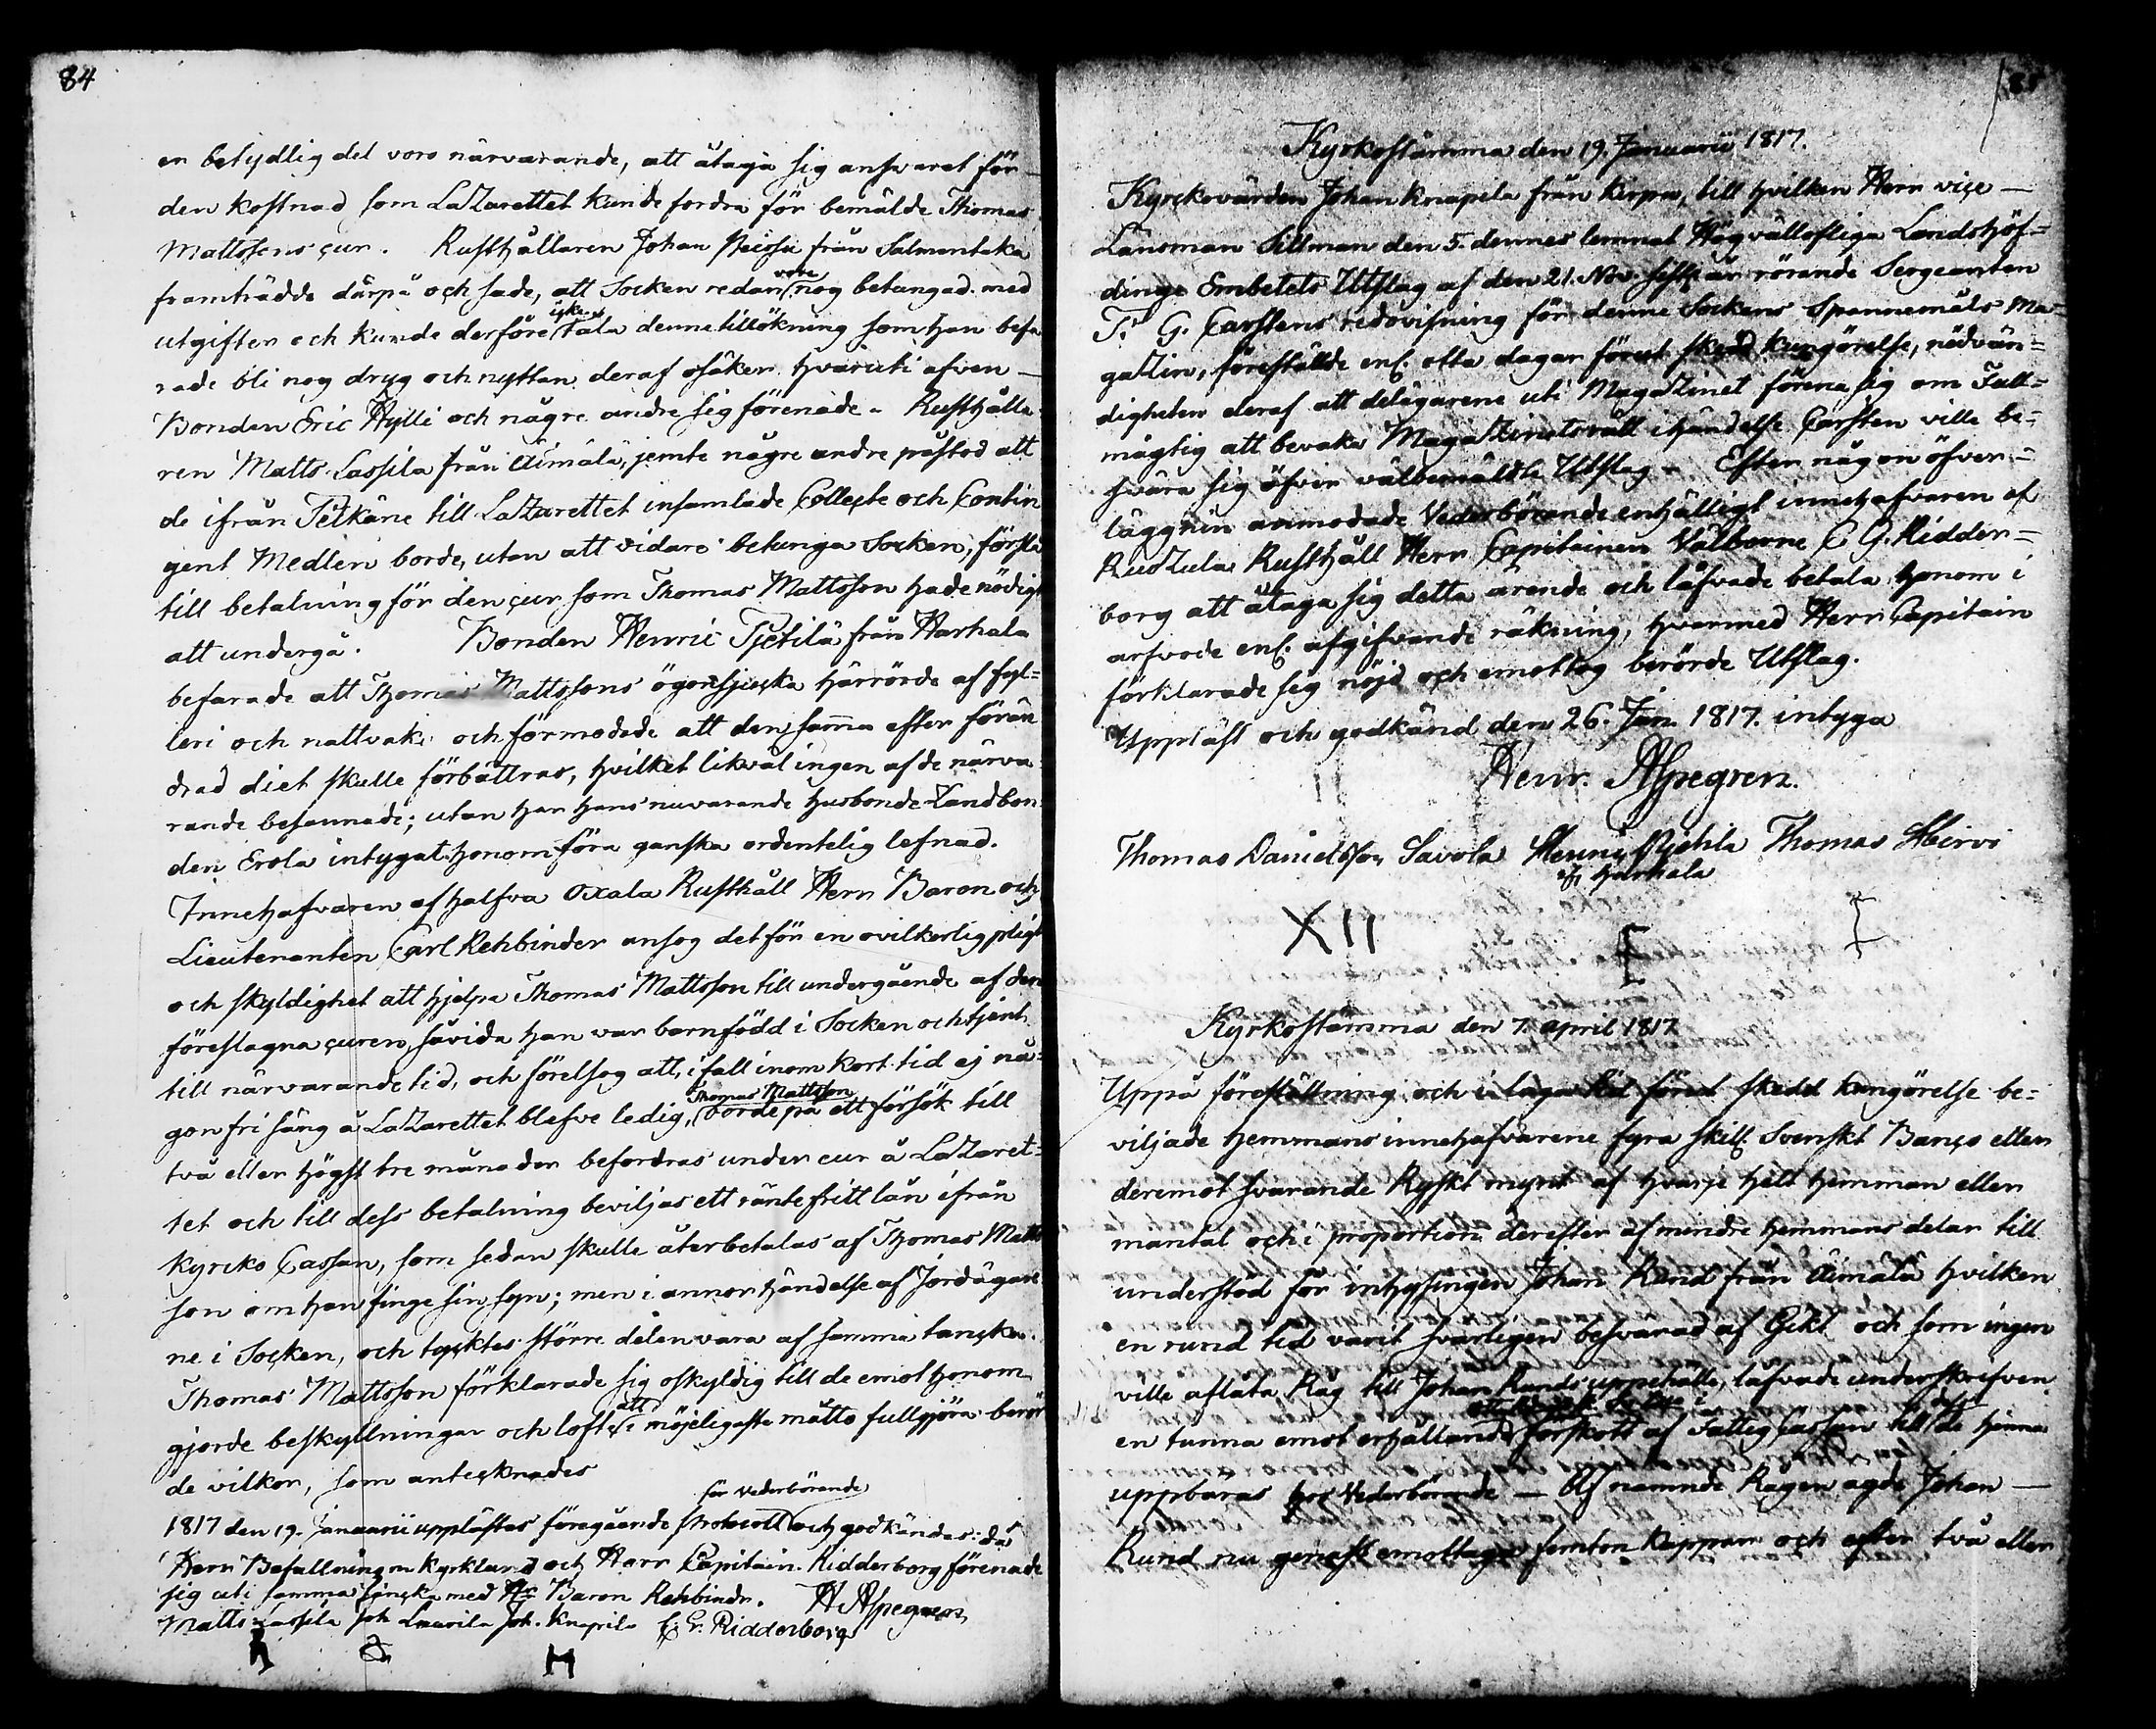 84
en betydlig del voro närvarande, att åtaga sig answaret för
den kostnad som Lazarettet kunde fordra för bemälde Thomas
Mattssons cur. Rusthållaren Johan Peissu från Salmentaka
framträdde därpå och sade, att Socken redan vore nog betungad med
utgifter och kunde derföre icke tåla denne tillökning som han befa
rade bli nog dryg och nyttan deraf osäker hvaruti äfven
Bonden Eric Hylli och någre andre sig förenade. Rusthålla
ren Matts Lassila från Äimälä, jemte någre andre påstod att
de ifrån Pelkäne till Lazarettet insamlade Collecte och Contin
gent Medlen borde, utan att vidare betunga Socken, förslå
till betalning för den cur som Thomas Mattsson hade nödigt
att undergå. Bonden Henric Pjetilä från Harhala
befarade att Thomas Mattssons ögonsjucka härrörde af fyl=
leri och nattvak och förmodade att den samma efter förän
drad diet skulle förbättras, hvilket likväl ingen af de närva
rande besannade; utan har hans nuvarande husbonde Landbon
den Erola intygat honom föra ganska ordentelig lefnad.
Innehafvaren af halfva Oxala Rusthåll Herr Baron och
Lieutenanten Carl Rehbinder ansog det för en ovilkorlig pligt
och skyldighet att hjelpa Thomas Mattsson till undergående af den
föreslagna curen, såvida han var barnfödd i Socken och tjent
till närvarande tid, och föreslog att, ifall inom kort tid ej nå=
gon fri säng å Lazarettet blefve ledig, Thomas Mattsson borde på ett försök till
två eller högst tre månader befordras under cur å Lazaret=
tet och till dess betalning beviljas ett räntefritt lån ifrån
Kyrko Cassan, som sedan skulle återbetalas af Thomas Matts
son om han finge sin syn; men i annor händelse af Jordägare
ne i Socken, och tycktes större delen vara af samma tancka.
Thomas Mattsson förklarade sig oskyldig till de emot honom
gjorde beskyllningar och lofte att i möjeligaste måtto fullgjöra berör
de vilkor, som antecknades
1817 den 19. Januarii upplästes föregående Protocoll för Vederbörande och godkändes: då
Herr Befallningsm Kyrklund och Herr Capitain Ridderborg förenade
sig uti samma tancka med Hr Baron Rehbinder. H Aspegren
Matts Lassila Joh Laurila Joh. Knapila C. G. Ridderborg
85
Kyrkostämma den 19. Januarii 1817.
Kyrckovärden Johan Knapila från Kirpu, till hvilken Herr vice
Länsman Sillman den 5. dennes lemnat Högvällofliga Landshöf=
dinge Embetets Utslag af den 21. Nov. sistl. år rörande Sergeanten
G. Carstens redovisning för denne Sockens Spannemåls Ma=
gazin, föreställde enl. otta dagar förut skedd kungörelse, nödvän=
digheten deraf att delägarene uti Magazinet förena sig om Full=
mägtig att bevaka Magazinets rätt i händelse Carsten ville be=
svära sig öfver välbemäldte Utslag. Efter någon öfver=
läggnin anmodade Vederbörande enhälligt innehafvaren af
Ruozula Rusthåll Herr Capitainen Välborne C G. Ridder=
borg att åtaga sig detta ärende och låfvade betala honom i
arfvode enl. afgifvande räkning, hvarmed Herr Capitain
förklarade sig nöjd och emottog berörde Utslag.
Uppläst och godkänd den 26. Jan. 1817. intyga
Henr. Aspegren.
Thomas Danielsson Savola Henric Pjetila Thomas Hirvi
från Harhala
XII
Kyrkostämma den 7. april 1817
Uppå föreställning och i laga tid förut skedd kungörelse be=
viljade hemmans innehafvarene fyra skill. Svenskt Banco eller
deremot svarande Ryskt mynt af hvarje helt hemman eller
mantal och i proportion derefter af mindre hemmans delar till
understöd för inhysingen Johan Rund från Äimälä hvilken
en rund tid varit svårligen besvärad af Gikt och som ingen
ville aflåta Råg till Johan Runds uppehälle, låfvade underskrifven
en tunna emot erhållande förskott af Fattig Cassan till de hinna
uppbäras hos Vederbörande — Af nämnde Rågen ägde Johan
Rund nu genast emottaga femton Kappar och efter två eller